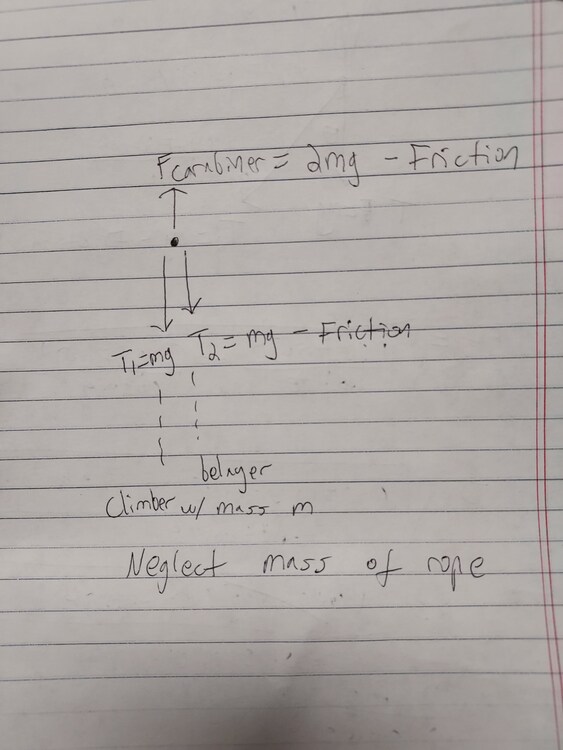 Fcarabiner = 2mg - Friction
T1=mg T2= mg - Friction
belayer
Climber w/ mass m
Neglect mass of rope